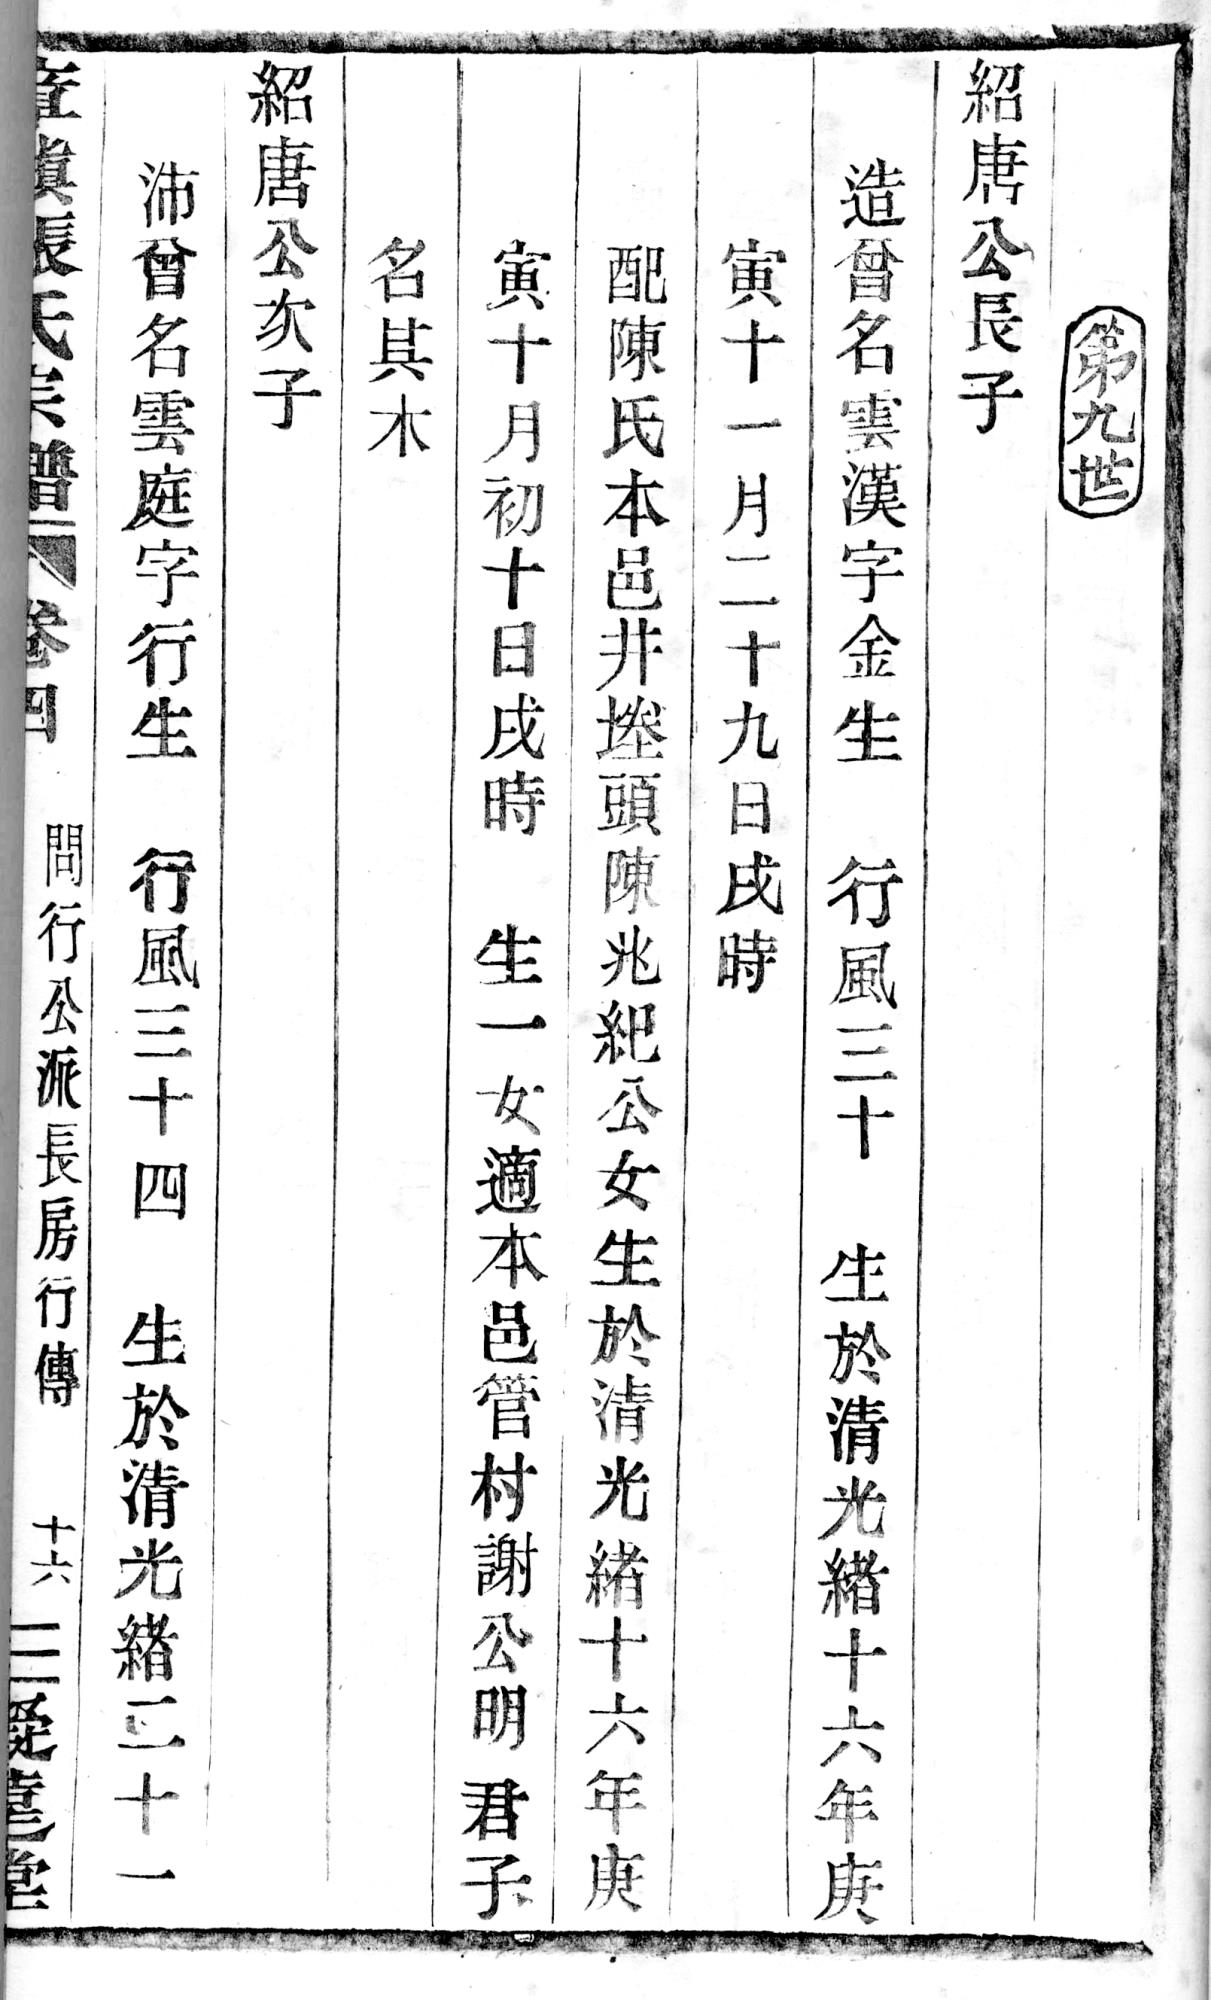 第九世
紹唐公長子
造曾名雲漢字金生　行風三十　生於清光緒十六年庚
寅十一月二十九日戌時
配陳氏本邑井墘頭陳兆紀公女生於清光緒十六年庚
寅十月初十日戌時　生一女適本邑管村謝公明 君子
名其木
紹唐公次子
沛曾名雲庭字行生　行風三十四　生於清光緒二十一
張氏宗譜　卷四　問行公派長房行傳　十六　三堂